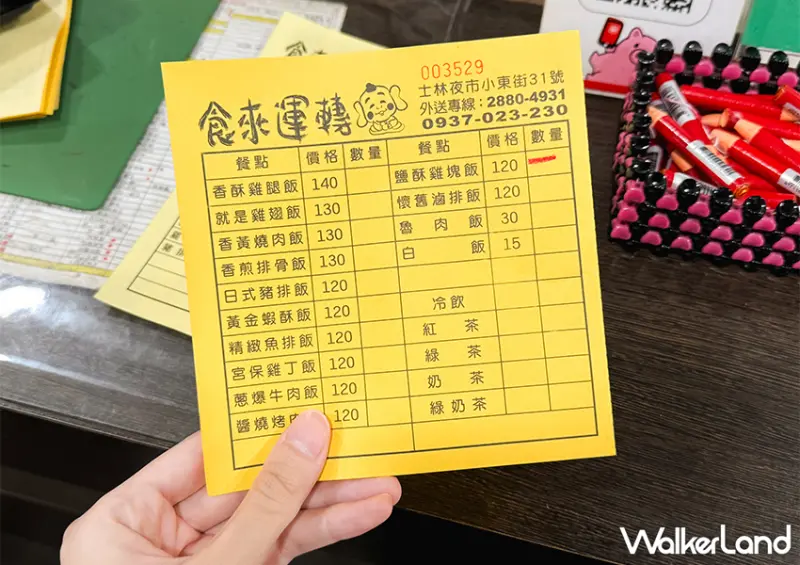 003529
士林夜市小東街31號
外送專線：2880-4931
0937-023-230
食來運轉
餐點 價格 數量 餐點 價格 數量
香酥雞腿飯 140 鹽酥雞塊飯 120
就是雞翅飯 130 懷舊滷排飯 120
香黃燒肉飯 130 魯肉飯 30
香煎排骨飯 130 白飯 15
日式豬排飯 120
黃金蝦酥飯 120 冷飲
精緻魚排飯 120 紅茶
宮保雞丁飯 120 綠茶
蔥爆牛肉飯 120 奶茶
醬燒烤 120 綠奶茶
WalkerLand